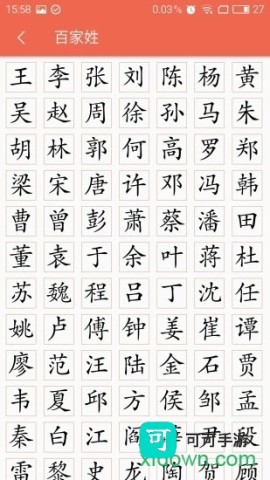 15:58 0.03% 27
百家姓
王 李 张 刘 陈 杨 黄
吴 赵 周 徐 孙 马 朱
胡 林 郭 何 高 罗 郑
梁 宋 唐 许 邓 冯 韩
曹 曾 彭 萧 蔡 潘 田
董 袁 于 余 叶 蒋 杜
苏 魏 程 吕 丁 沈 任
姚 卢 傅 钟 姜 崔 谭
廖 范 汪 陆 金 石 贾
韦 夏 邱 方 侯 邹 孟
秦 白 江 阎 尹 段
雷 黎 史 龙 陶 贺 顾
可 可可手游
xiaown.com